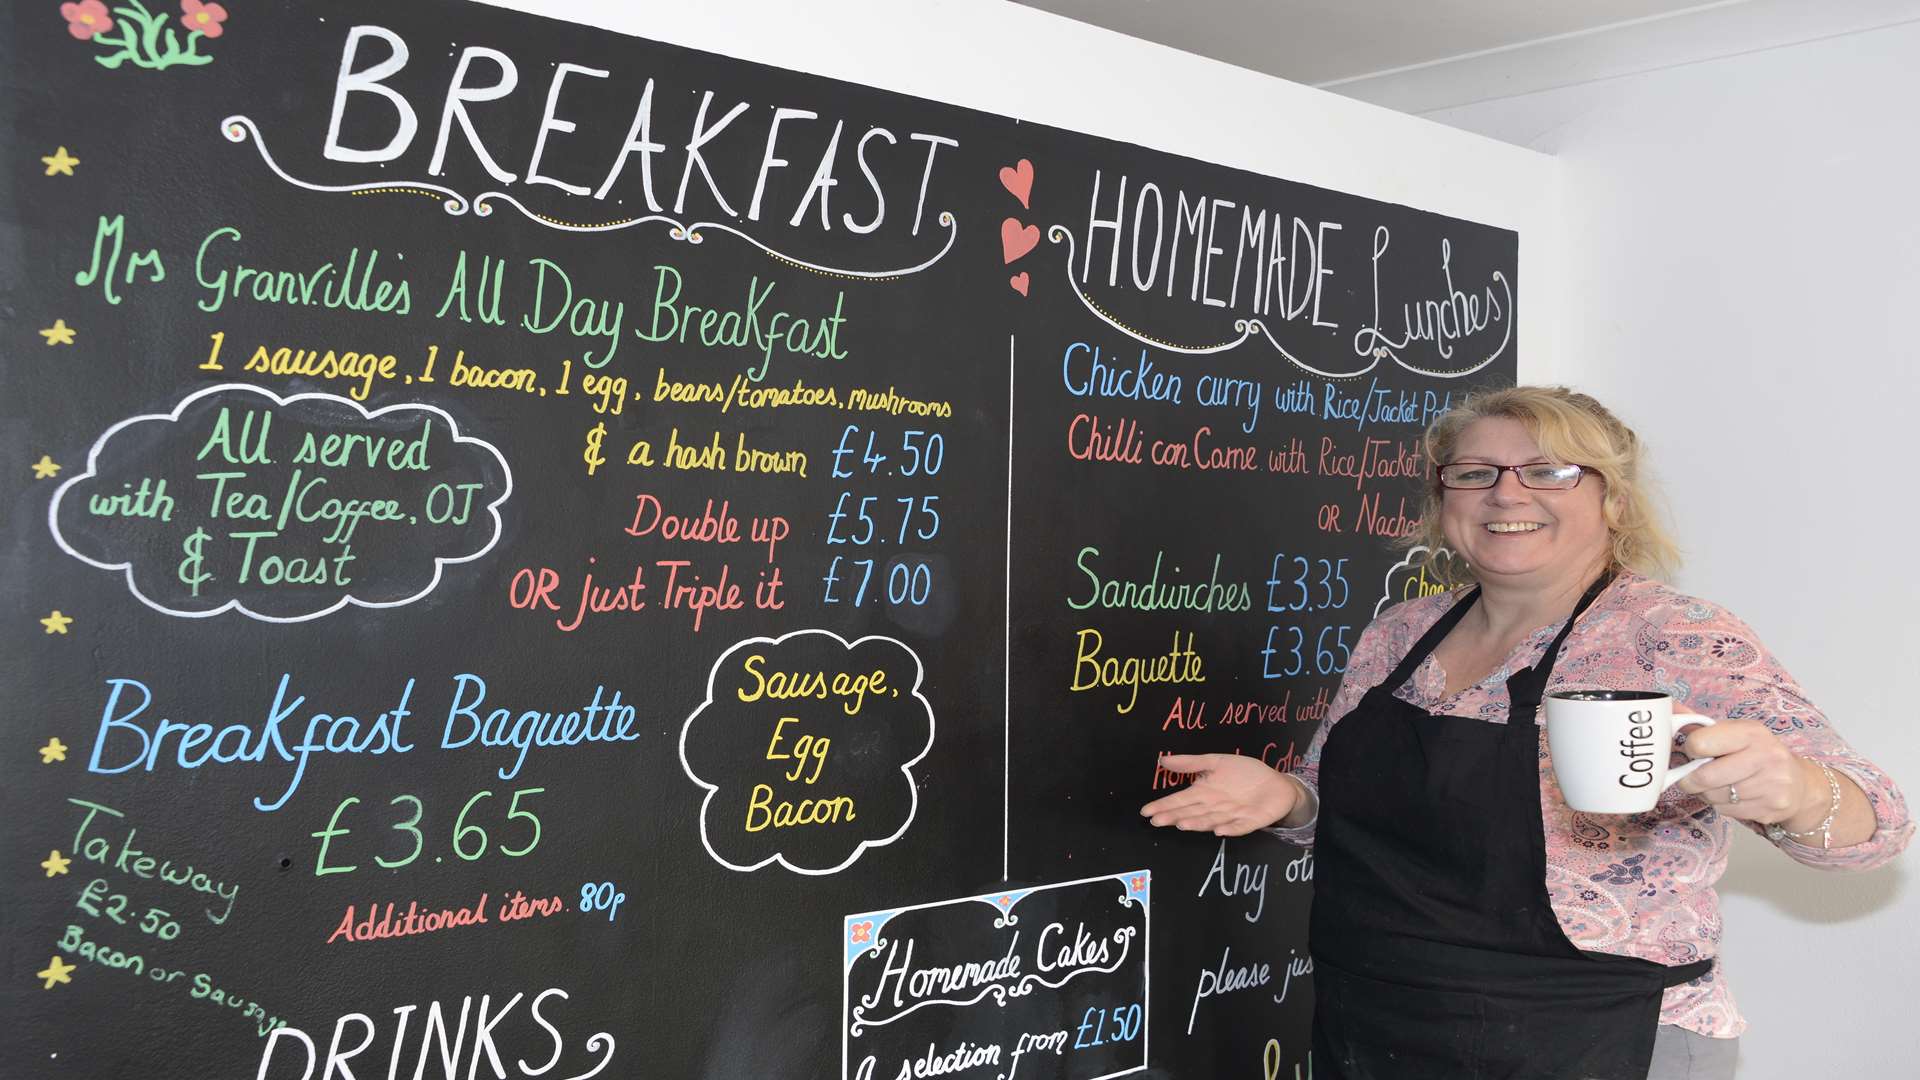 BREAKFAST
Mrs Granville's All Day Breakfast
1 sausage, 1 bacon, 1 egg, beans/tomatoes, mushrooms
& a hash brown £4.50
Double up £5.75
OR just Triple it £7.00
All served
with Tea/Coffee, OJ
& Toast
Breakfast Baguette
£3.65
Additional items 80p
Sausage,
Egg
Bacon
Takeway
£2.50
Bacon or Sausage
DRINKS
HOMEMADE Lunches
Chicken curry with Rice/Jacket
Chilli con Carne with Rice/Jacket
OR
Sandwiches £3.35
Baguette £3.65
All served with
Any
please
Homemade Cakes
A selection from £1.50
Coffee